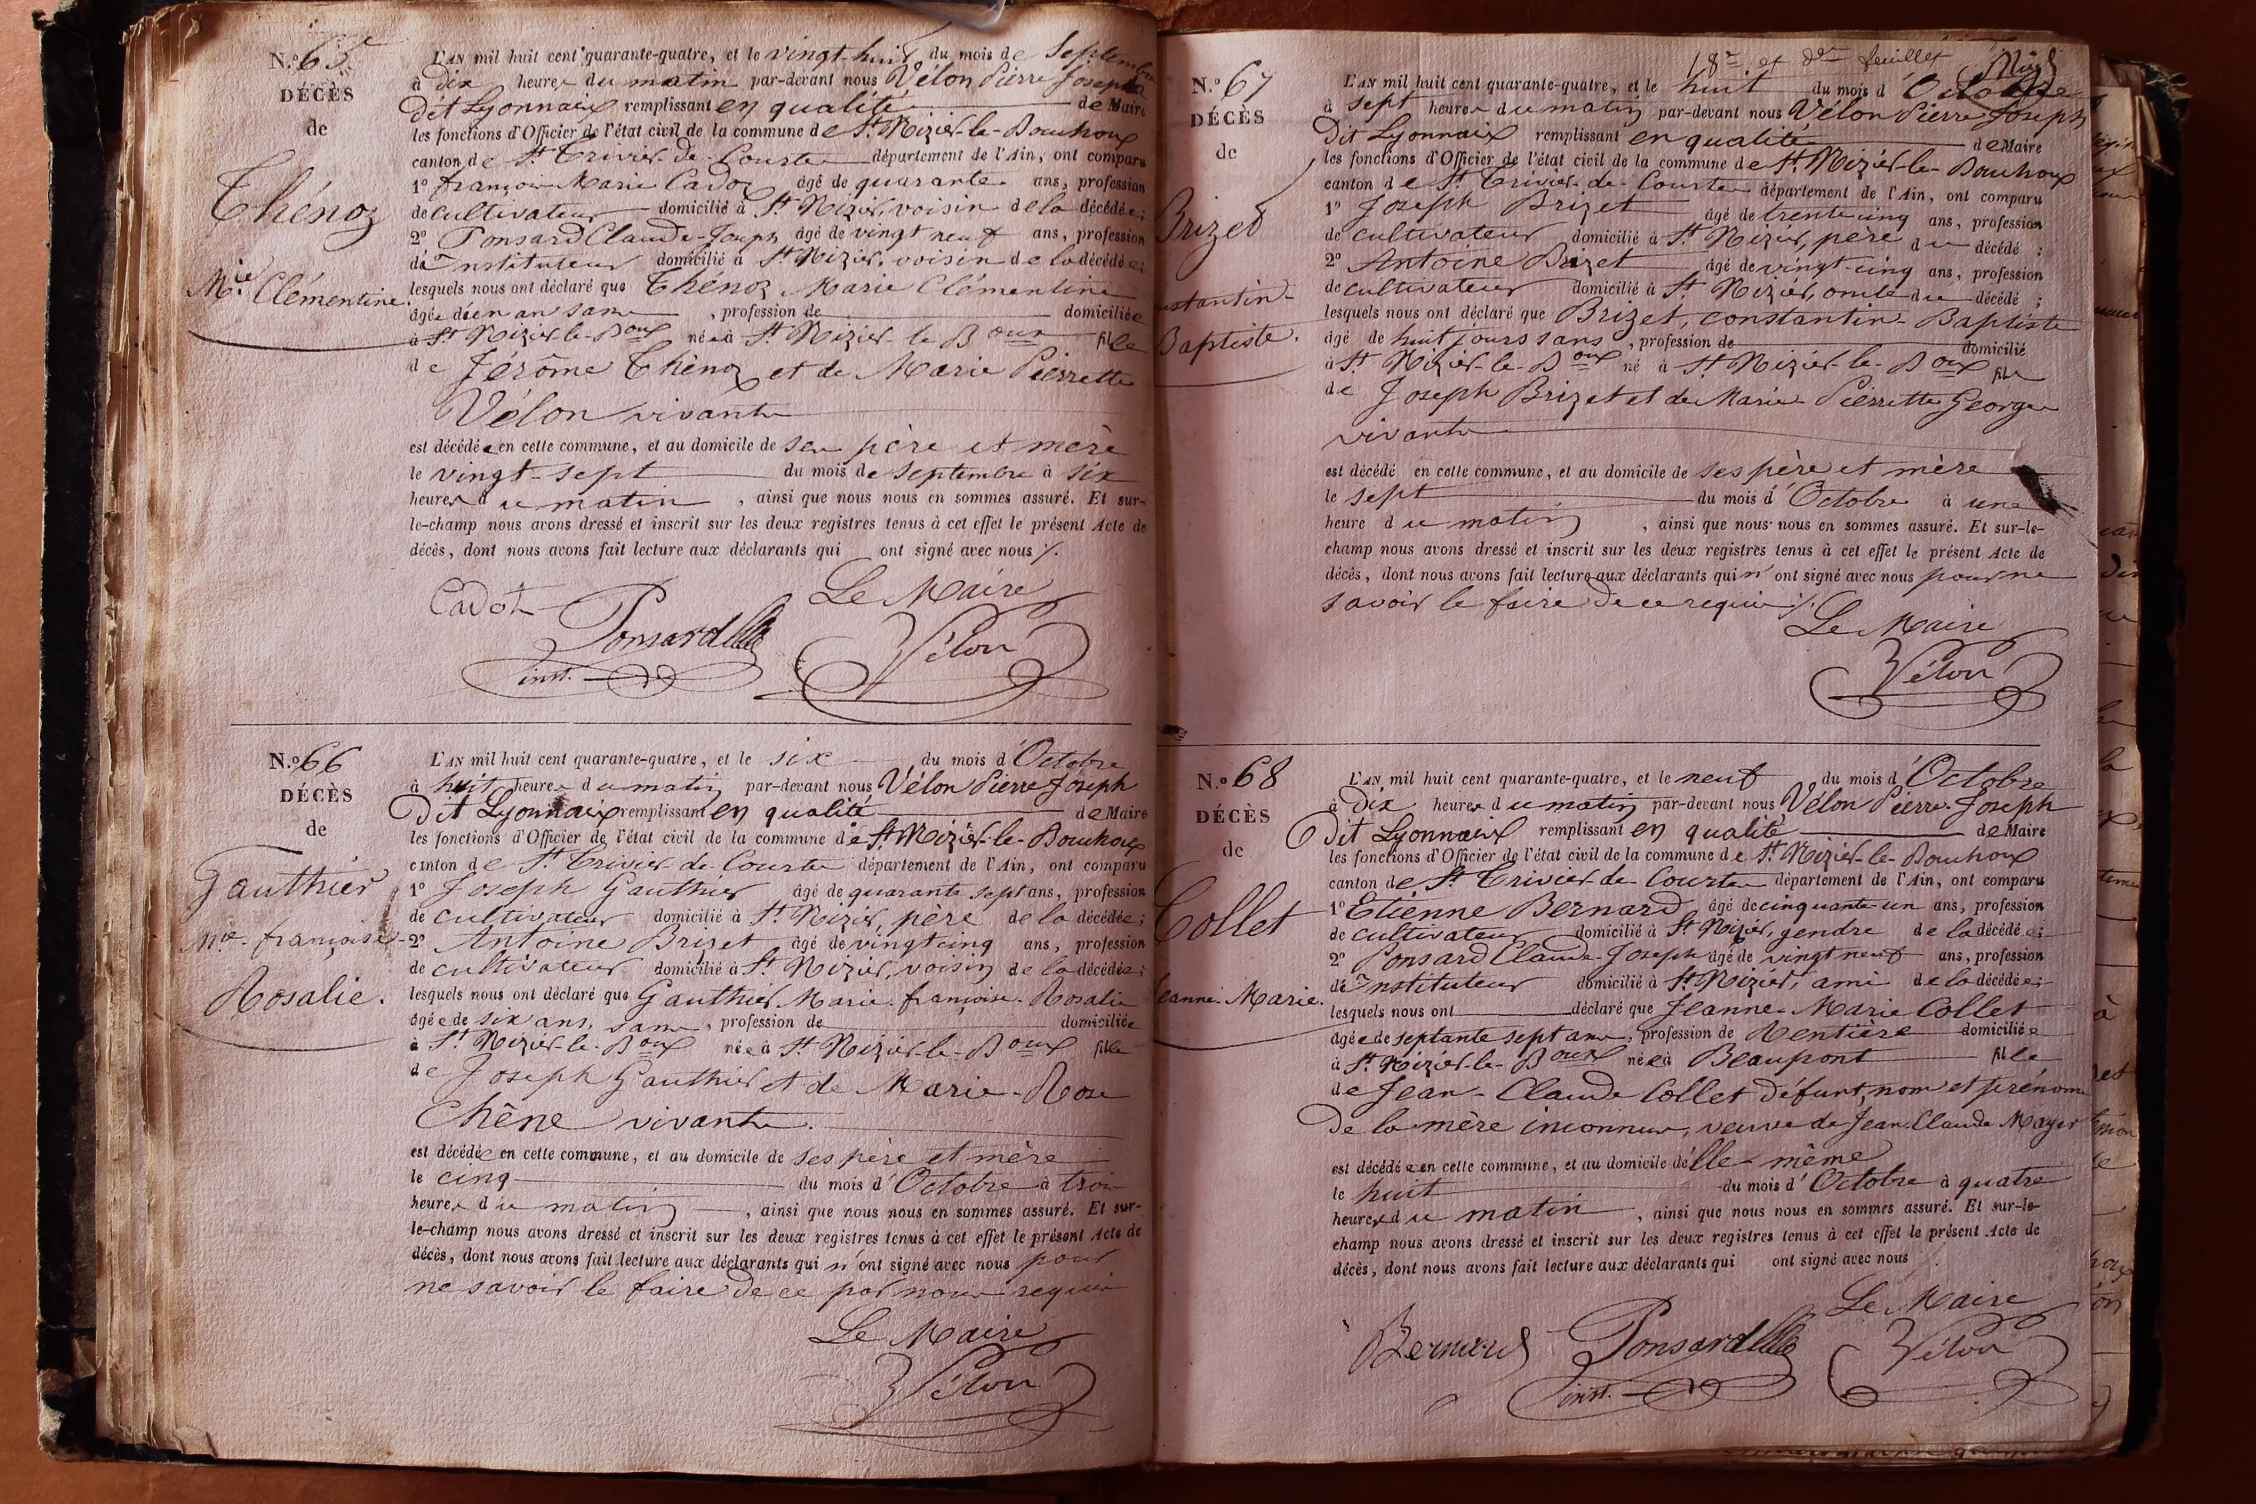 N.º 65
DÉCÈS
de
Thénoz
M.ie Clémentine.
L'AN mil huit cent quarante-quatre, et le vingt-huit du mois de Septembre
à Dix heures du matin par-devant nous Vélon Pierre Joseph
Dit Lyonnais remplissant en qualité de Maire
les fonctions d'Officier de l'état civil de la commune de St. Nizier-le-Bouchoux
canton de St. Trivier-de-Courtes département de l'Ain, ont comparu
1º françois Marie Cadoz âgé de quarante ans, profession
de cultivateur domicilié à St. Nizier, voisin de la décédée;
2º Ponsard Claude-Joseph âgé de vingt neuf ans, profession
d'instituteur domicilié à St. Nizier, voisin de la décédée;
lesquels nous ont déclaré que Thénoz Marie Clémentine
âgée d'un an sans, profession de domiciliée
à St. Nizier-le-Boux née à St. Nizier-le-Boux fille
de Jérôme Thénoz et de Marie Pierrette
Vélon vivants
est décédée en cette commune, et au domicile de ses père et mère
le vingt-sept du mois de septembre à six
heures du matin, ainsi que nous nous en sommes assuré. Et sur-
le-champ nous avons dressé et inscrit sur les deux registres tenus à cet effet le présent Acte de
décès, dont nous avons fait lecture aux déclarants qui ont signé avec nous ./.
Cadot Le Maire
Ponsard Vélon
inst.
N.º 66
DÉCÈS
de
Gauthier
M.ie françoise-
Rosalie.
L'AN mil huit cent quarante-quatre, et le six du mois d'Octobre
à huit heures du matin par-devant nous Vélon Pierre Joseph
Dit Lyonnais remplissant en qualité de Maire
les fonctions d'Officier de l'état civil de la commune de St. Nizier-le-Bouchoux
canton de St. Trivier de Courtes département de l'Ain, ont comparu
1º Joseph Gauthier âgé de quarante sept ans, profession
de cultivateur domicilié à St. Nizier, père de la décédée;
2º Antoine Brizet âgé de vingt cinq ans, profession
de cultivateur domicilié à St. Nizier, voisin de la décédée;
lesquels nous ont déclaré que Gauthier Marie françoise Rosalie
âgée de six ans, sans, profession de domiciliée
à St. Nizier-le-Boux née à St. Nizier-le-Boux fille
de Joseph Gauthier et de Marie-Rose
Chêne vivants.
est décédée en cette commune, et au domicile de ses père et mère
le cinq du mois d'Octobre à trois
heures du matin, ainsi que nous nous en sommes assuré. Et sur-
le-champ nous avons dressé et inscrit sur les deux registres tenus à cet effet le présent Acte de
décès, dont nous avons fait lecture aux déclarants qui n'ont signé avec nous pour
ne savoir le faire de ce par nous requis
Le Maire
Vélon
18e et Der feuillet
N.º 67
DÉCÈS
de
Brizet
Baptiste.
L'AN mil huit cent quarante-quatre, et le huit du mois d'Octobre
à sept heures du matin par-devant nous Vélon Pierre Joseph
Dit Lyonnais remplissant en qualité de Maire
les fonctions d'Officier de l'état civil de la commune de St. Nizier-le-Bouchoux
canton de St. Trivier-de-Courtes département de l'Ain, ont comparu
1º Joseph Brizet âgé de trente cinq ans, profession
de cultivateur domicilié à St. Nizier, père du décédé;
2º Antoine Brizet âgé de vingt-cinq ans, profession
de cultivateur domicilié à St. Nizier, oncle du décédé;
lesquels nous ont déclaré que Brizet, constantin-Baptiste
âgé de huit jours sans, profession de domicilié
à St. Nizier-le-Boux né à St. Nizier-le-Boux fils
de Joseph Brizet et de Marie Pierrette Georges
vivants
est décédé en cette commune, et au domicile de ses père et mère
le sept du mois d'Octobre à une
heure du matin, ainsi que nous nous en sommes assuré. Et sur-le-
champ nous avons dressé et inscrit sur les deux registres tenus à cet effet le présent Acte de
décès, dont nous avons fait lecture aux déclarants qui n'ont signé avec nous pour ne
savoir le faire de ce requis ./.
Le Maire
Vélon
N.º 68
DÉCÈS
de
Collet
Jeanne-Marie.
L'AN mil huit cent quarante-quatre, et le neuf du mois d'Octobre
à Dix heures du matin par-devant nous Vélon Pierre-Joseph
Dit Lyonnais remplissant en qualité de Maire
les fonctions d'Officier de l'état civil de la commune de St. Nizier-le-Bouchoux
canton de St. Trivier-de-Courtes département de l'Ain, ont comparu
1º Etienne Bernard âgé de cinquante-un ans, profession
de cultivateur domicilié à St. Nizier, gendre de la décédée;
2º Ponsard Claude-Joseph âgé de vingt neuf ans, profession
d'instituteur domicilié à St. Nizier, ami de la décédée;
lesquels nous ont déclaré que Jeanne-Marie Collet
âgée de septante sept ans, profession de Rentière domiciliée
à St. Nizier-le-Boux née à Beaupont fille
de Jean-Claude Collet défunt, nom et prénoms
De la mère inconnus, veuve de Jean Claude Mayer
est décédée en cette commune, et au domicile d'elle-même
le huit du mois d'Octobre à quatre
heures du matin, ainsi que nous nous en sommes assuré. Et sur-le-
champ nous avons dressé et inscrit sur les deux registres tenus à cet effet le présent Acte de
décès, dont nous avons fait lecture aux déclarants qui ont signé avec nous
Le Maire
Bernard Ponsard Vélon
inst.